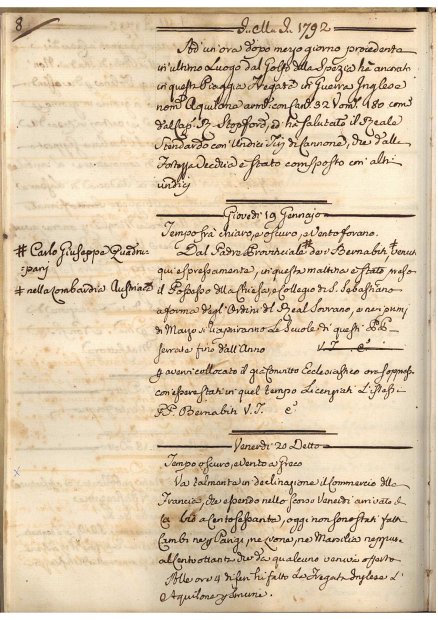 8
1792
Ad un'ora dopo mezo giorno procedente
in ultimo Luogo dal Golfo della Spezia hà ancorato
in questa Piaggia Fregata di Guerra Inglese
nom.ª Aquilone arm.ª con 32 180 com.ª
dal Cap. R. Stopford, ed hà salutato il Reale
Stendardo con Undici Tiri di Cannone, che dalla
Fortezza Vecchia è stato corrisposto con altri
undici
Giovedi 19 Gennajo
Tempo frà chiaro, e oscuro, e Vento forano.
# Carlo Giuseppe Quadru=
=pari
‡ nella Lombardia Austriaca
Dal Padre Provinciale # dei Bernabiti ‡ venuto
qui espressamente, in questa mattina è stato preso
il Possesso della Chiesa, e Collegio di S. Sebastiano
a forma degl'Ordini del Real Sovrano, e nei primi
di Marzo si riapriranno le Scuole di questi PP.
serrate fino dall'Anno
V. I. e
g avervi collocato il già Convitto Ecclesiastico ora soppresso
con essere stati in quel tempo Licenziati l'istessi
PP. Bernabiti V. I. e
Venerdi 20 Detto
Tempo oscuro, e Vento a Greco
Va talmente in declinazione il Commercio della
Francia, che essendo nello scorso Venerdi arrivato il
Cambio a Centosessanta, oggi non sono stati fatti
Cambi ne p Parigi, ne p Lione, ne p Marsilia neppure
al Cento ottanta che da qualcuno veniva offerto
Alle ore 4 di sera hà fatto Vela la Fregata Inglese L'
Aquilone p